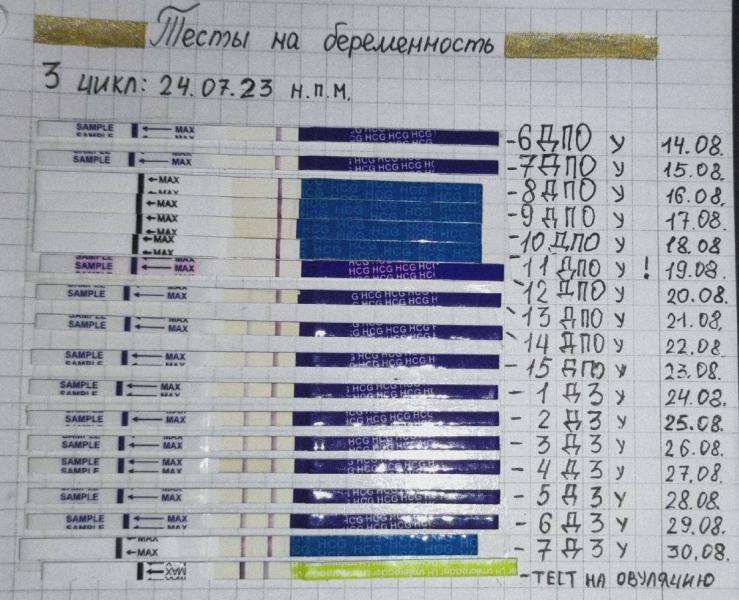 Тесты на беременность
3 цикл: 24.07.23 н.п.м.
SAMPLE MAX HCG HCG HCG - 6 ДПО У 14.08.
SAMPLE MAX HCG HCG HCG - 7 ДПО У 15.08.
MAX HCG HCG HCG - 8 ДПО У 16.08.
MAX - 9 ДПО У 17.08.
MAX - 10 ДПО У 18.08
SAMPLE MAX HCG HCG HCG - 11 ДПО У ! 19.08.
SAMPLE MAX HCG HCG HCG - 12 ДПО У 20.08.
SAMPLE MAX HCG HCG HCG - 13 ДПО У 21.08.
MAX HCG HCG HCG - 14 ДПО У 22.08.
SAMPLE MAX HCG HCG HCG - 15 ДПО У 23.08.
SAMPLE MAX HCG HCG HCG - 1 ДЗ У 24.08.
SAMPLE MAX HCG HCG HCG - 2 ДЗ У 25.08.
SAMPLE MAX HCG HCG HCG - 3 ДЗ У 26.08.
SAMPLE MAX HCG HCG HCG - 4 ДЗ У 27.08.
SAMPLE MAX HCG HCG HCG - 5 ДЗ У 28.08.
SAMPLE MAX HCG HCG HCG - 6 ДЗ У 29.08.
MAX - 7 ДЗ У 30.08.
MAX LH - ТЕСТ НА ОВУЛЯЦИЮ